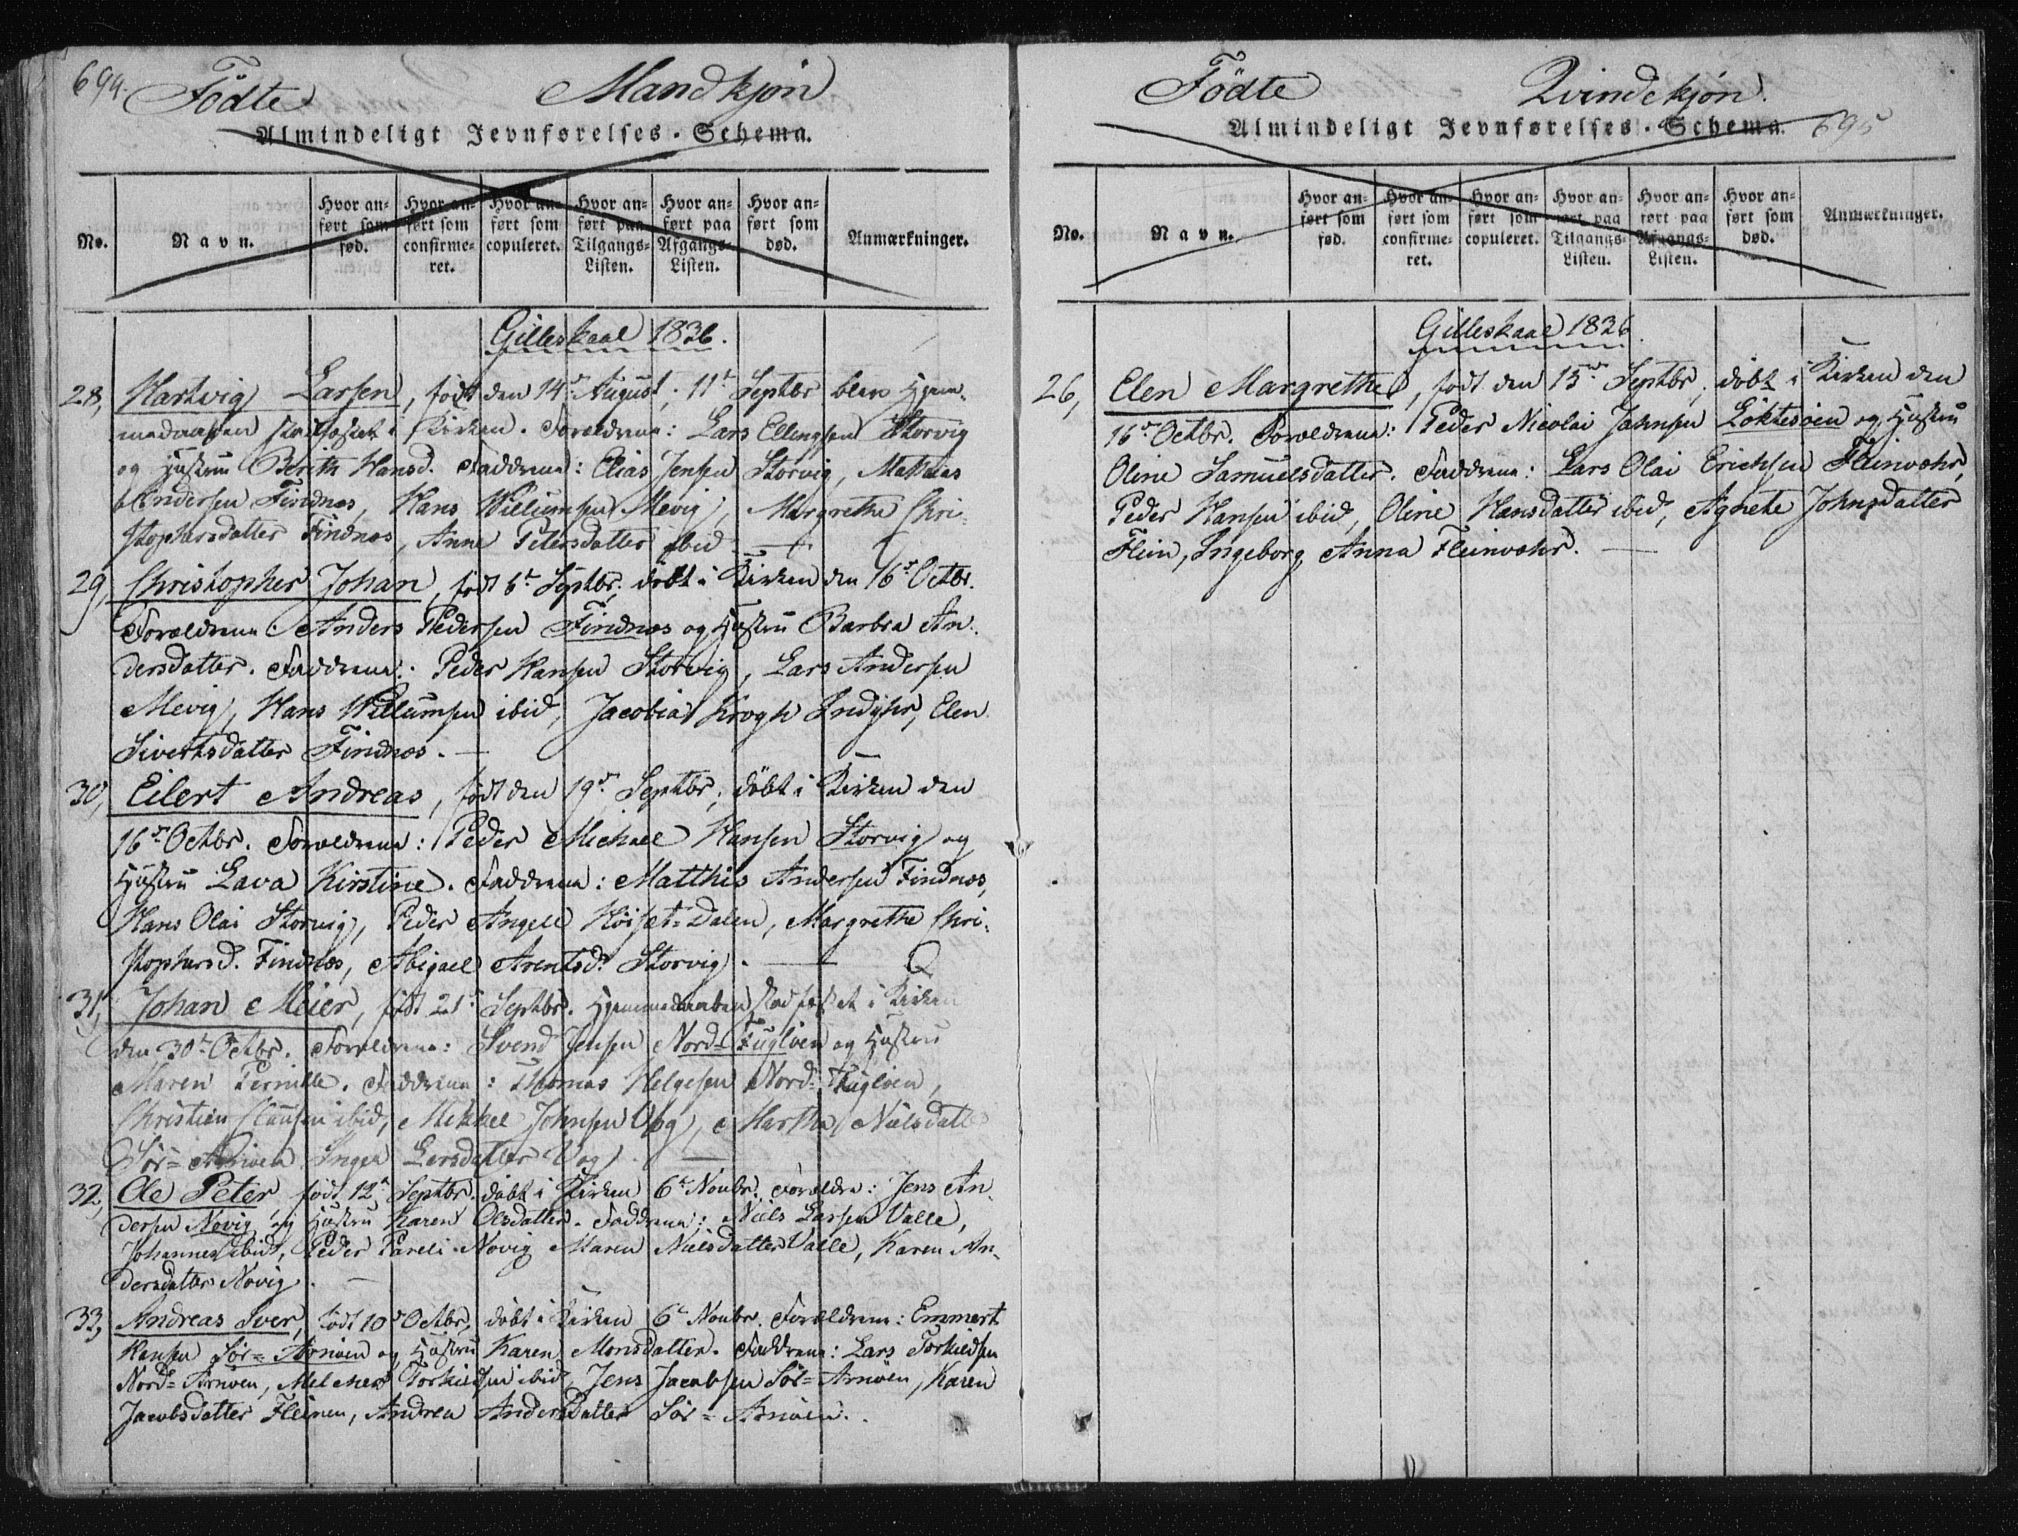 694.
Födte Mandkjøn
Almindeligt Jevnførelses-Schema.
No. Navn. Hvor anført som fød. Hvor anført som confirmeret. Hvor anført som copuleret. Hvor anført paa Tilgangs-Listen. Hvor anført paa Afgangs-Listen. Hvor anført som død. Anmærkninger.
Gilleskaal 1836.
28, Hartvig Larsen, född den 14de August, 11te Septbr blev Hjem-
medaaben stadfæstet i Kirken. Forældrene: Lars Ellingsen Storvig
og Hustru Berith Hansd. Faddrene: Elias Jensen Storvig, Mathias
Andersen Findnæs, Hans Willumsen Mevig, Margrethe Chri-
stophersdatter Findnæs, Anne Petersdatter ibid. —
29, Christopher Johan, född 6te Septbr, döbt i Kirken den 16de Octbr.
Forældrene: Anders Pedersen Findnæs og Hustru Barbra An-
dersdatter. Faddrene: Peder Hansen Storvig, Lars Andersen
Mevig, Hans Willumsen ibid, Jacobia Krogh Indyhr, Elen
Sivertsdatter Findnæs. —
30, Eilert Andreas, född den 19de Septbr, döbt i Kirken den
16de Octbr. Forældrene: Peder Michael Hansen Storvig og
Hustru Lava Kirstine. Faddrene: Matthis Andersen Findnæs,
Hans Olai Storvig, Peder Angell Höiset-Dalen, Margrethe Chri-
stophersd. Findnæs, Abigael Arentsdr Storvig. —
31, Johan Meier, född 21de Septbr. Hjemmedaaben stadfæstet i Kirken
den 30te Octbr. Forældrene: Svend Jensen Nord-Fuglöen og Hustru
Maren Pernille. Faddrene: Thomas Helgesen Nord-Fuglöen,
Christien Clausen ibid, Mikkel Johnsen Vog, Martha Nielsdatt
Sör-Arnöen Inger Larsdatter Vog. —
32, Ole Peter född 12te Septbr. döbt i Kirken 6te Novbr. Forældre: Jens An-
dersen Novig og Hustru Karen Olsdatter. Faddrene: Niels Larsen Valle,
Johannes ibid, Peder Pareli Novig Maren Nielsdatter Valle, Karen An-
dersdatter Novig. —
33, Andreas Iver, född 10de Octbr, döbt i Kirken 6te Novbr. Forældrene: Emmert
Hansen Sör-Arnöen og Hustru Karen Monsdatter. Faddrene: Lars Torkildsen
Nord-Arnöen, Melcher Torkildsen ibid, Jens Jacobsen Sör-Arnöen, Karen
Jacobsdatter Fleinen, Andrea Andersdatter Sör-Arnöen.
Födte Qvindekjön.
Almindeligt Jevnførelses-Schema. 695
No. Navn. Hvor anført som fød. Hvor anført som confirmeret. Hvor anført som copuleret. Hvor anført paa Tilgangs-Listen. Hvor anført paa Afgangs-Listen. Hvor anført som død. Anmærkninger.
Gilleskaal 1836
26, Elen Margrethe, född den 15de Septbr, döbt i Kirken den
16de Octbr. Forældrene: Peder Nicolai Jahnsen Löktesöen og Hustru
Oline Samuelsdatter. Faddrene: Lars Olai Erichsen Fleinvohr,
Peder Hansen ibid, Oline Hansdatter ibid, Agnete Johnsdatter
Flein, Ingeborg Anna Fleinvohr. —